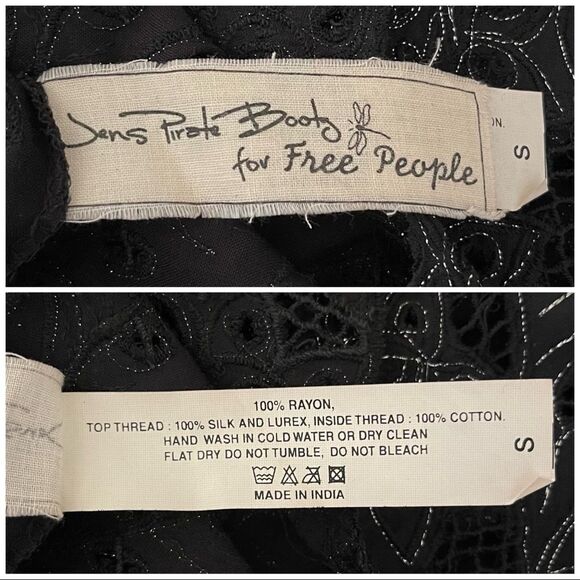 Jens Pirate Booty
for Free People
ON.
S
100% RAYON,
TOP THREAD : 100% SILK AND LUREX, INSIDE THREAD : 100% COTTON.
HAND WASH IN COLD WATER OR DRY CLEAN
FLAT DRY DO NOT TUMBLE, DO NOT BLEACH
MADE IN INDIA
S